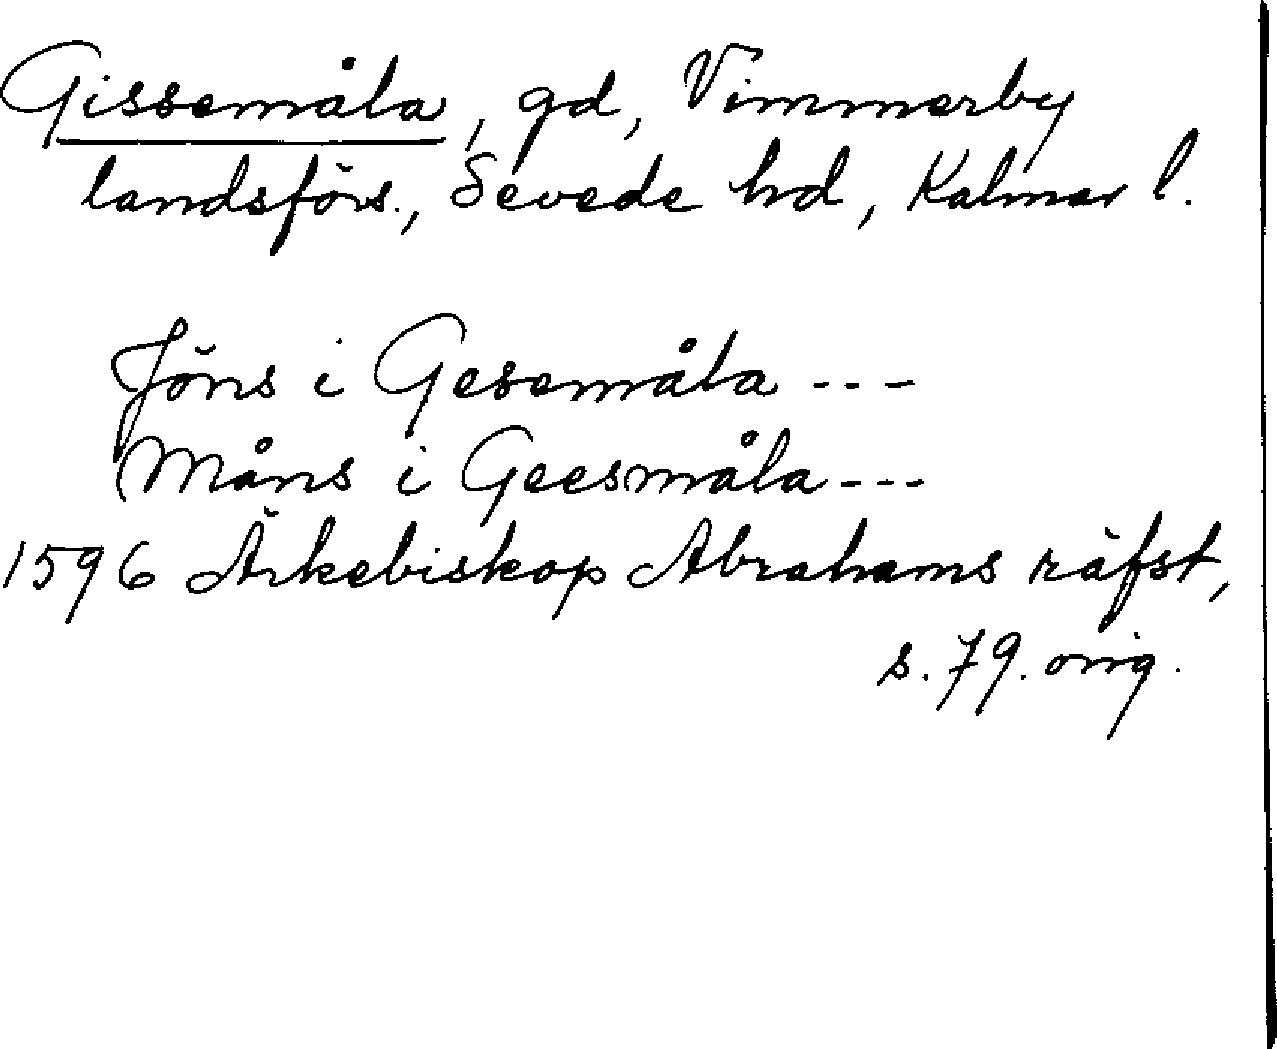 Gissemåla, gd, Vimmerby
landsförs., Sevede hd, Kalmar l.
Jöns i Gesemåla ---
Måns i Geesmåla ---
1596 Ärkebiskop Abrahams räfst,
s. 79. orig.